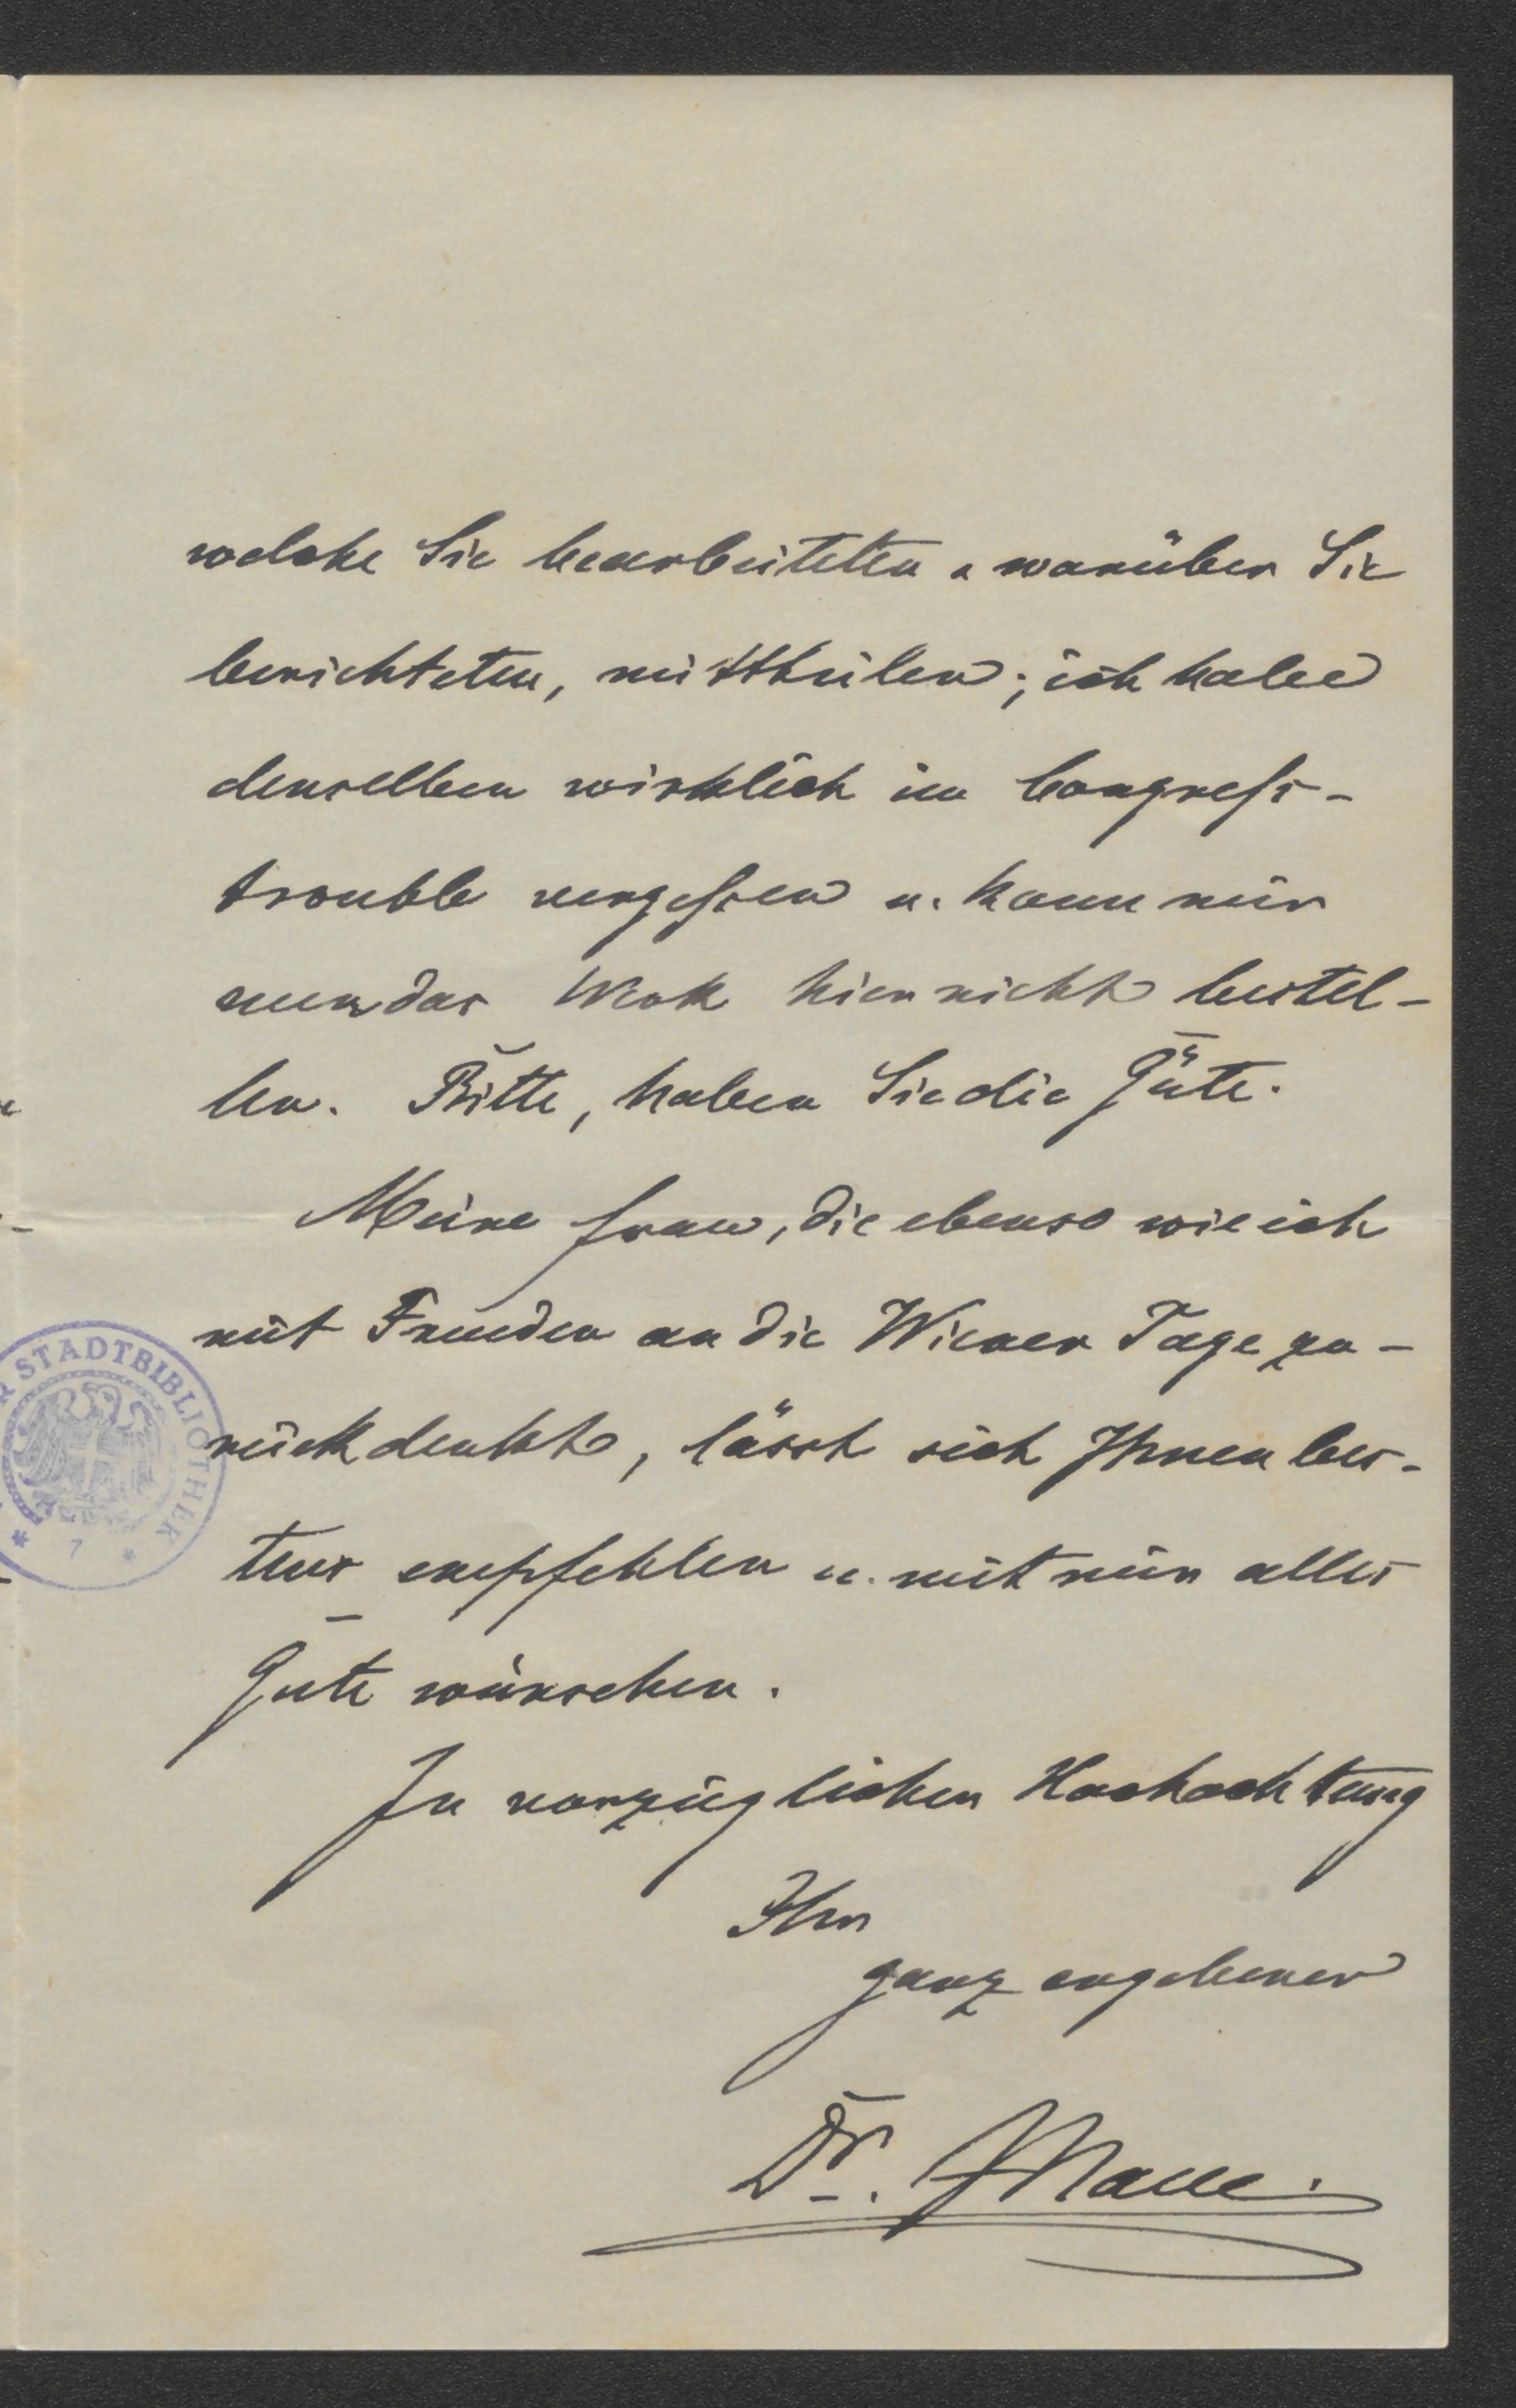 welche Sie bearbeiteten u. worüber Sie
berichteten, mittheilen; ich habe
denselben wirklich im Congreß-
trouble vergeßen u. kann mir
nun das Werk hier nicht bestel-
len. Bitte, haben Sie die Güte.
Meine Frau, die ebenso wie ich
mit Freuden an die Wiener Tage zu-
rückdenkt, lässt sich Ihnen bes-
tens empfehlen u. mit mir alles
Gute wünschen.
In vorzüglicher Hochachtung
Ihr
ganz ergebener
Dr.
STADTBIBLIOTHEK
* 7 *